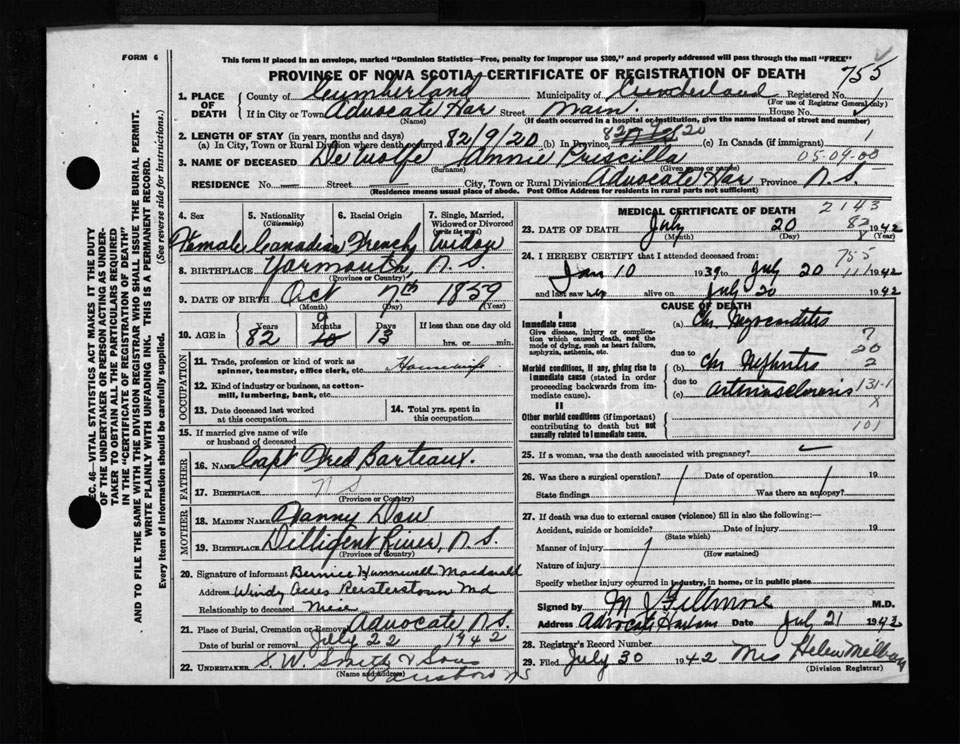 FORM 6
This form if placed in an envelope, marked "Dominion Statistics—Free, penalty for improper use $300," and properly addressed will pass through the mail "FREE"
PROVINCE OF NOVA SCOTIA, CERTIFICATE OF REGISTRATION OF DEATH
755
1. PLACE OF DEATH
County of Cumberland Municipality of Cumberland Registered No.
(For use of Registrar General only)
If in City or Town Advocate Har Street Main. House No.
(Name) (If death occurred in a hospital or institution, give the name instead of street and number)
2. LENGTH OF STAY (in years, months and days)
(a) In City, Town or Rural Division where death occurred 82/9/20 (b) in Province (c) In Canada (if immigrant)
3. NAME OF DECEASED De Wolfe Annie Priscilla 05.09.00
(Surname) (Given name or names)
RESIDENCE No. Street City, Town or Rural Division Advocate Har Province N.S.
(Residence means usual place of abode. Post Office Address for residents in rural parts not sufficient)
SEC. 46—VITAL STATISTICS ACT MAKES IT THE DUTY
OF THE UNDERTAKER OR PERSON ACTING AS UNDER-
TAKER TO OBTAIN ALL THE PARTICULARS REQUIRED
IN THE "CERTIFICATE OF REGISTRATION OF DEATH"
AND TO FILE THE SAME WITH THE DIVISION REGISTRAR WHO SHALL ISSUE THE BURIAL PERMIT.
WRITE PLAINLY WITH UNFADING INK. THIS IS A PERMANENT RECORD.
Every item of information should be carefully supplied. (See reverse side for instructions.)
4. Sex
Female
5. Nationality
(Citizenship)
Canadian
6. Racial Origin
French
7. Single, Married,
Widowed or Divorced
(write the word)
Widow
8. BIRTHPLACE Yarmouth, N.S.
(Province or Country)
9. DATE OF BIRTH Oct 7th 1859
(Month) (Day) (Year)
10. AGE in Years Months Days If less than one day old
82 9 10 13 hrs. or min.
OCCUPATION
11. Trade, profession or kind of work as
spinner, teamster, office clerk, etc. Housewife
12. Kind of industry or business, as cotton-
mill, lumbering, bank, etc.
13. Date deceased last worked
at this occupation
14. Total yrs. spent in
this occupation
15. If married give name of wife
or husband of deceased
FATHER
16. Name Capt Fred Barteaux.
17. Birthplace N S
(Province or Country)
MOTHER
18. Maiden Name Nanny Dow
19. Birthplace Dilligent River, N.S.
(Province or Country)
20. Signature of informant Bernice Hunnewell Macdonald
Address Windy Acres Reisterstown Md
Relationship to deceased Niece
21. Place of Burial, Cremation or Removal Advocate, N.S.
Date of burial or removal July 22 1942
22. UNDERTAKER S.W. Smith & Sons
(Name and address) Parrsboro NS
MEDICAL CERTIFICATE OF DEATH 2143
23. DATE OF DEATH July 20 1942
(Month) (Day) (Year)
82
24. I HEREBY CERTIFY that I attended deceased from:
755
Jan 10 1939 to July 20 1942
111
and last saw alive on July 20 1942
CAUSE OF DEATH
I
Immediate cause
Give disease, injury or complica-
tion which caused death, not the
mode of dying, such as heart failure,
asphyxia, asthenia, etc.
(a) Chr Myocarditis
due to
Morbid conditions, if any, giving rise to
immediate cause (stated in order
proceeding backwards from im-
mediate cause).
(b) Chr Nephritis
due to
(c) arteriosclerosis
20
2
131-1
x
101
II
Other morbid conditions (if important)
contributing to death but not
causally related to immediate cause.
25. If a woman, was the death associated with pregnancy?
26. Was there a surgical operation? Date of operation 19
State findings Was there an autopsy?
27. If death was due to external causes (violence) fill in also the following:—
Accident, suicide or homicide? Date of injury 19
(State which)
Manner of injury
(How sustained)
Nature of injury
Specify whether injury occurred in industry, in home, or in public place
Signed by M. Gillmore M.D.
Address Advocate Harbour Date July 21 1942
28. Registrar's Record Number
29. Filed July 30 1942 Mrs Helen
(Division Registrar)